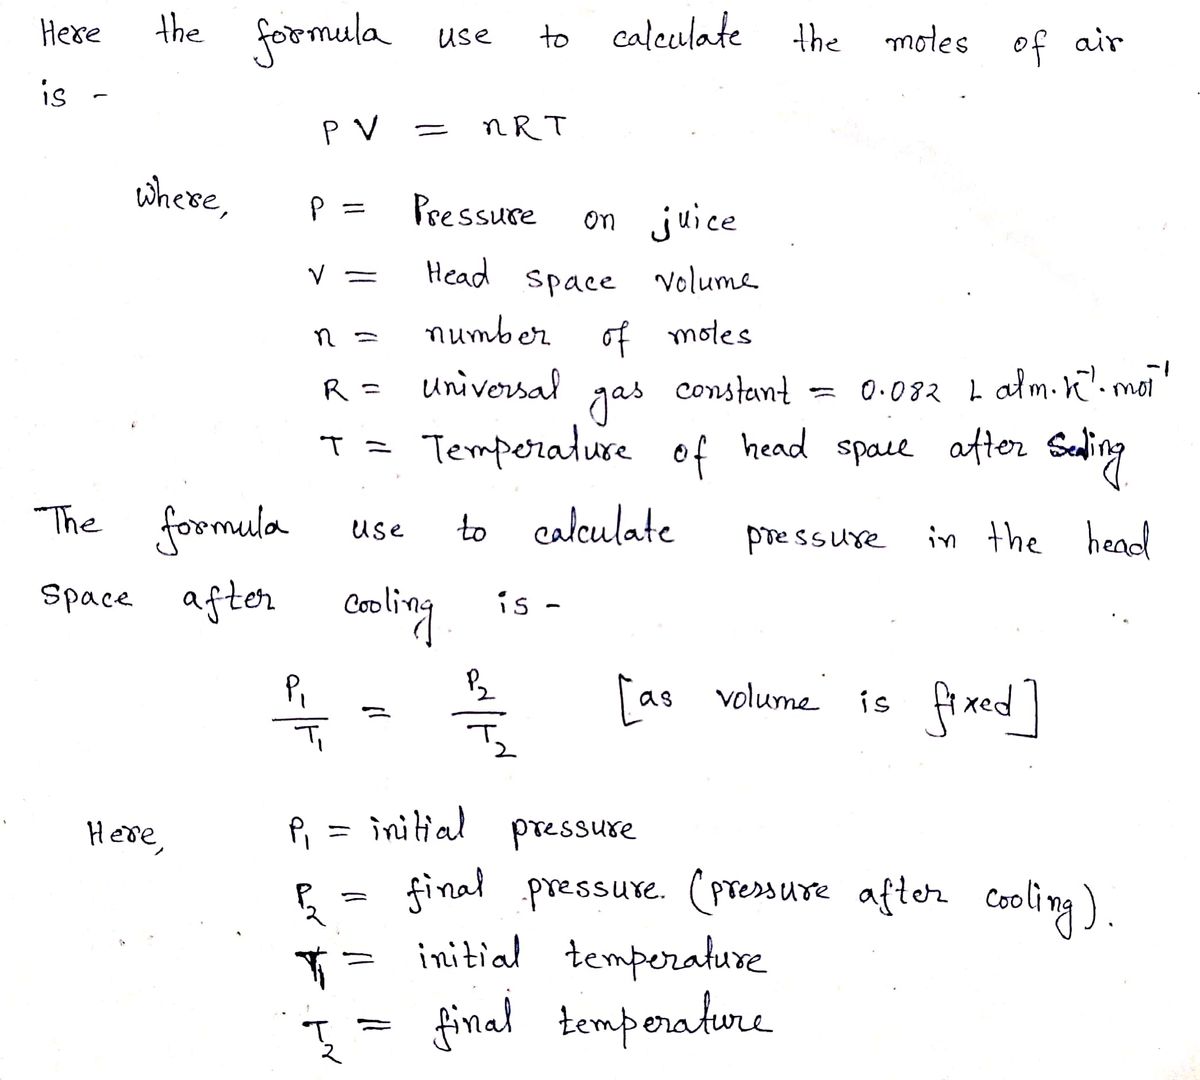 Here the formula use to calculate the moles of air
is -
PV = nRT
Where, P = Pressure on juice
V = Head space volume
n = number of moles
R = universal gas constant = 0.082 L atm. K⁻¹. mol⁻¹
T = Temperature of head space after Sealing
The formula use to calculate pressure in the head
space after cooling is -
P₁/T₁ = P₂/T₂ [as volume is fixed]
Here, P₁ = initial pressure
P₂ = final pressure. (pressure after cooling).
T₁ = initial temperature
T₂ = final temperature